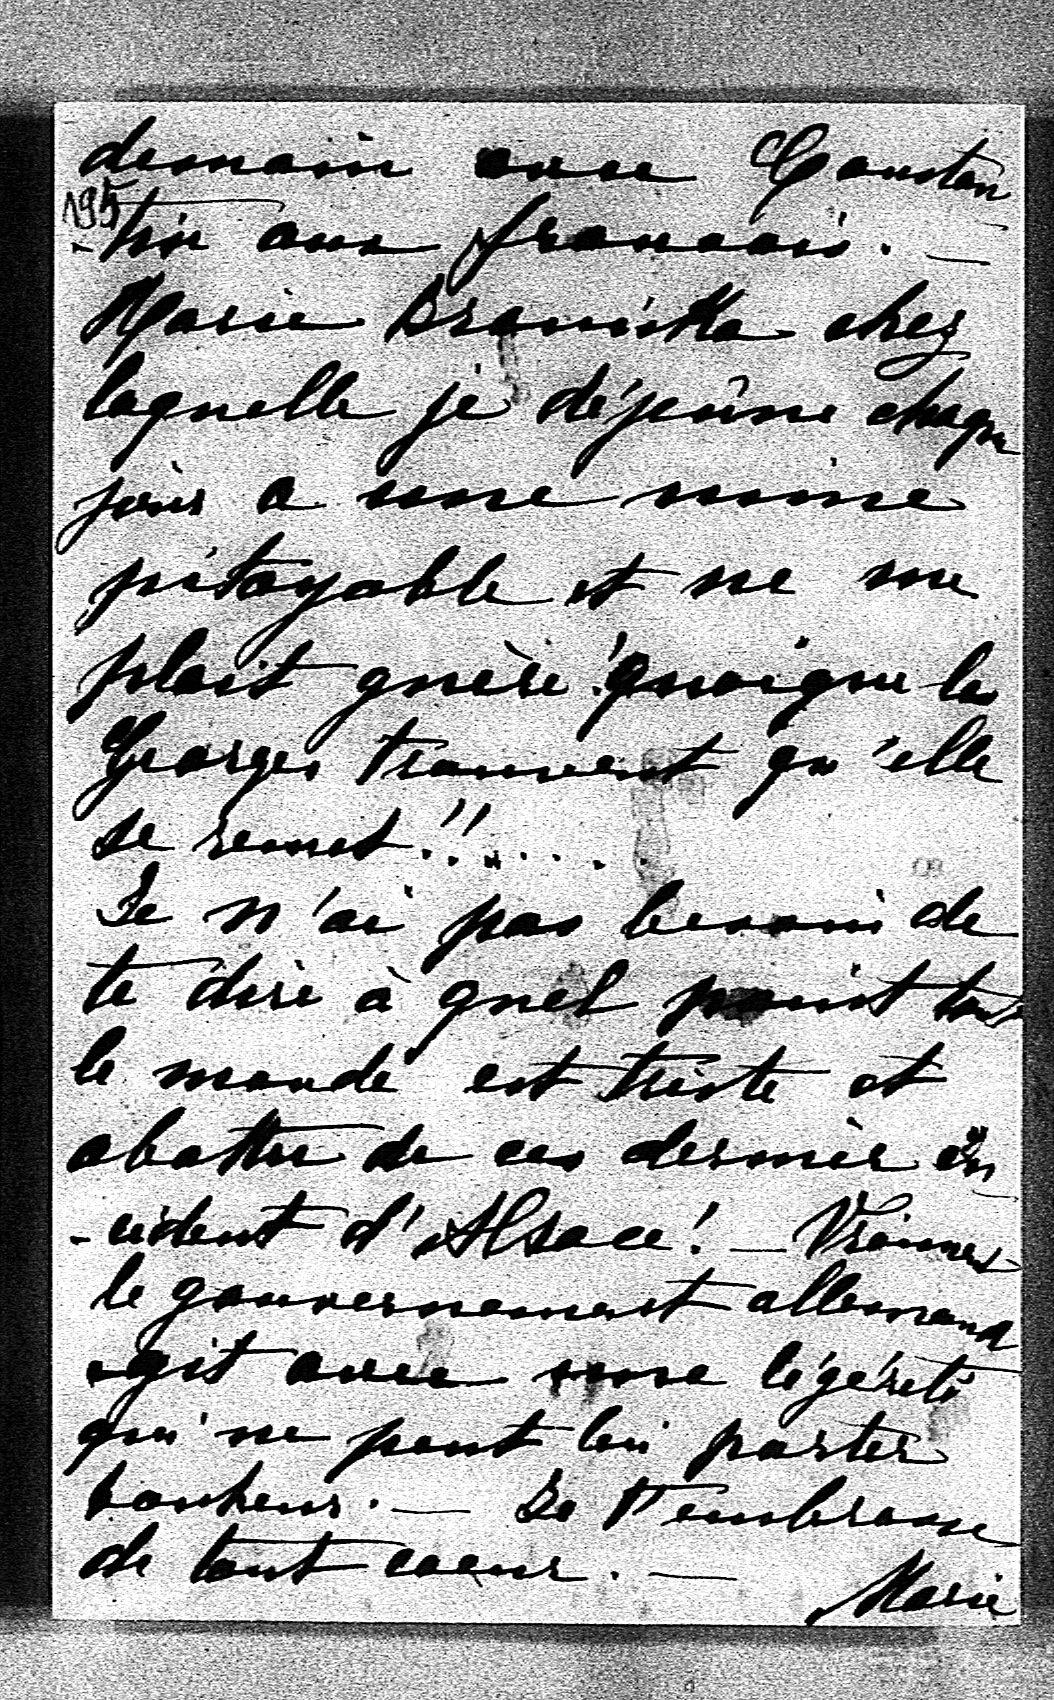 demain avec Constan
195
-tin aux français. —
Marie Branicka chez
laquelle je déjeûne chaque
jour a une mine
pitoyable et ne me
plait guère! quoique les
Georges trouvent qu'elle
se remet!!......
Je n'ai pas besoin de
te dire à quel point tout
le monde est triste et
abattu de ces dernier in
-cident d'Alsace! — Vraiment
le gouvernement allemand
agit avec une légéreté
qui ne peut lui porter
bonheur. — Je t'embrasse
de tout coeur. —
Marie